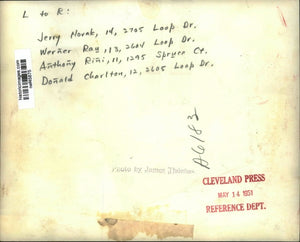 L to R:
Jerry Novak, 14, 2705 Loop Dr.
Werner Ray, 13, 2604 Loop Dr.
Anthony Rini, 11, 1295 Spruce Ct.
Donald Charlton, 12, 2605 Loop Dr.
A6183
Photo by James Thomas
CLEVELAND PRESS
MAY 14 1951
REFERENCE DEPT.